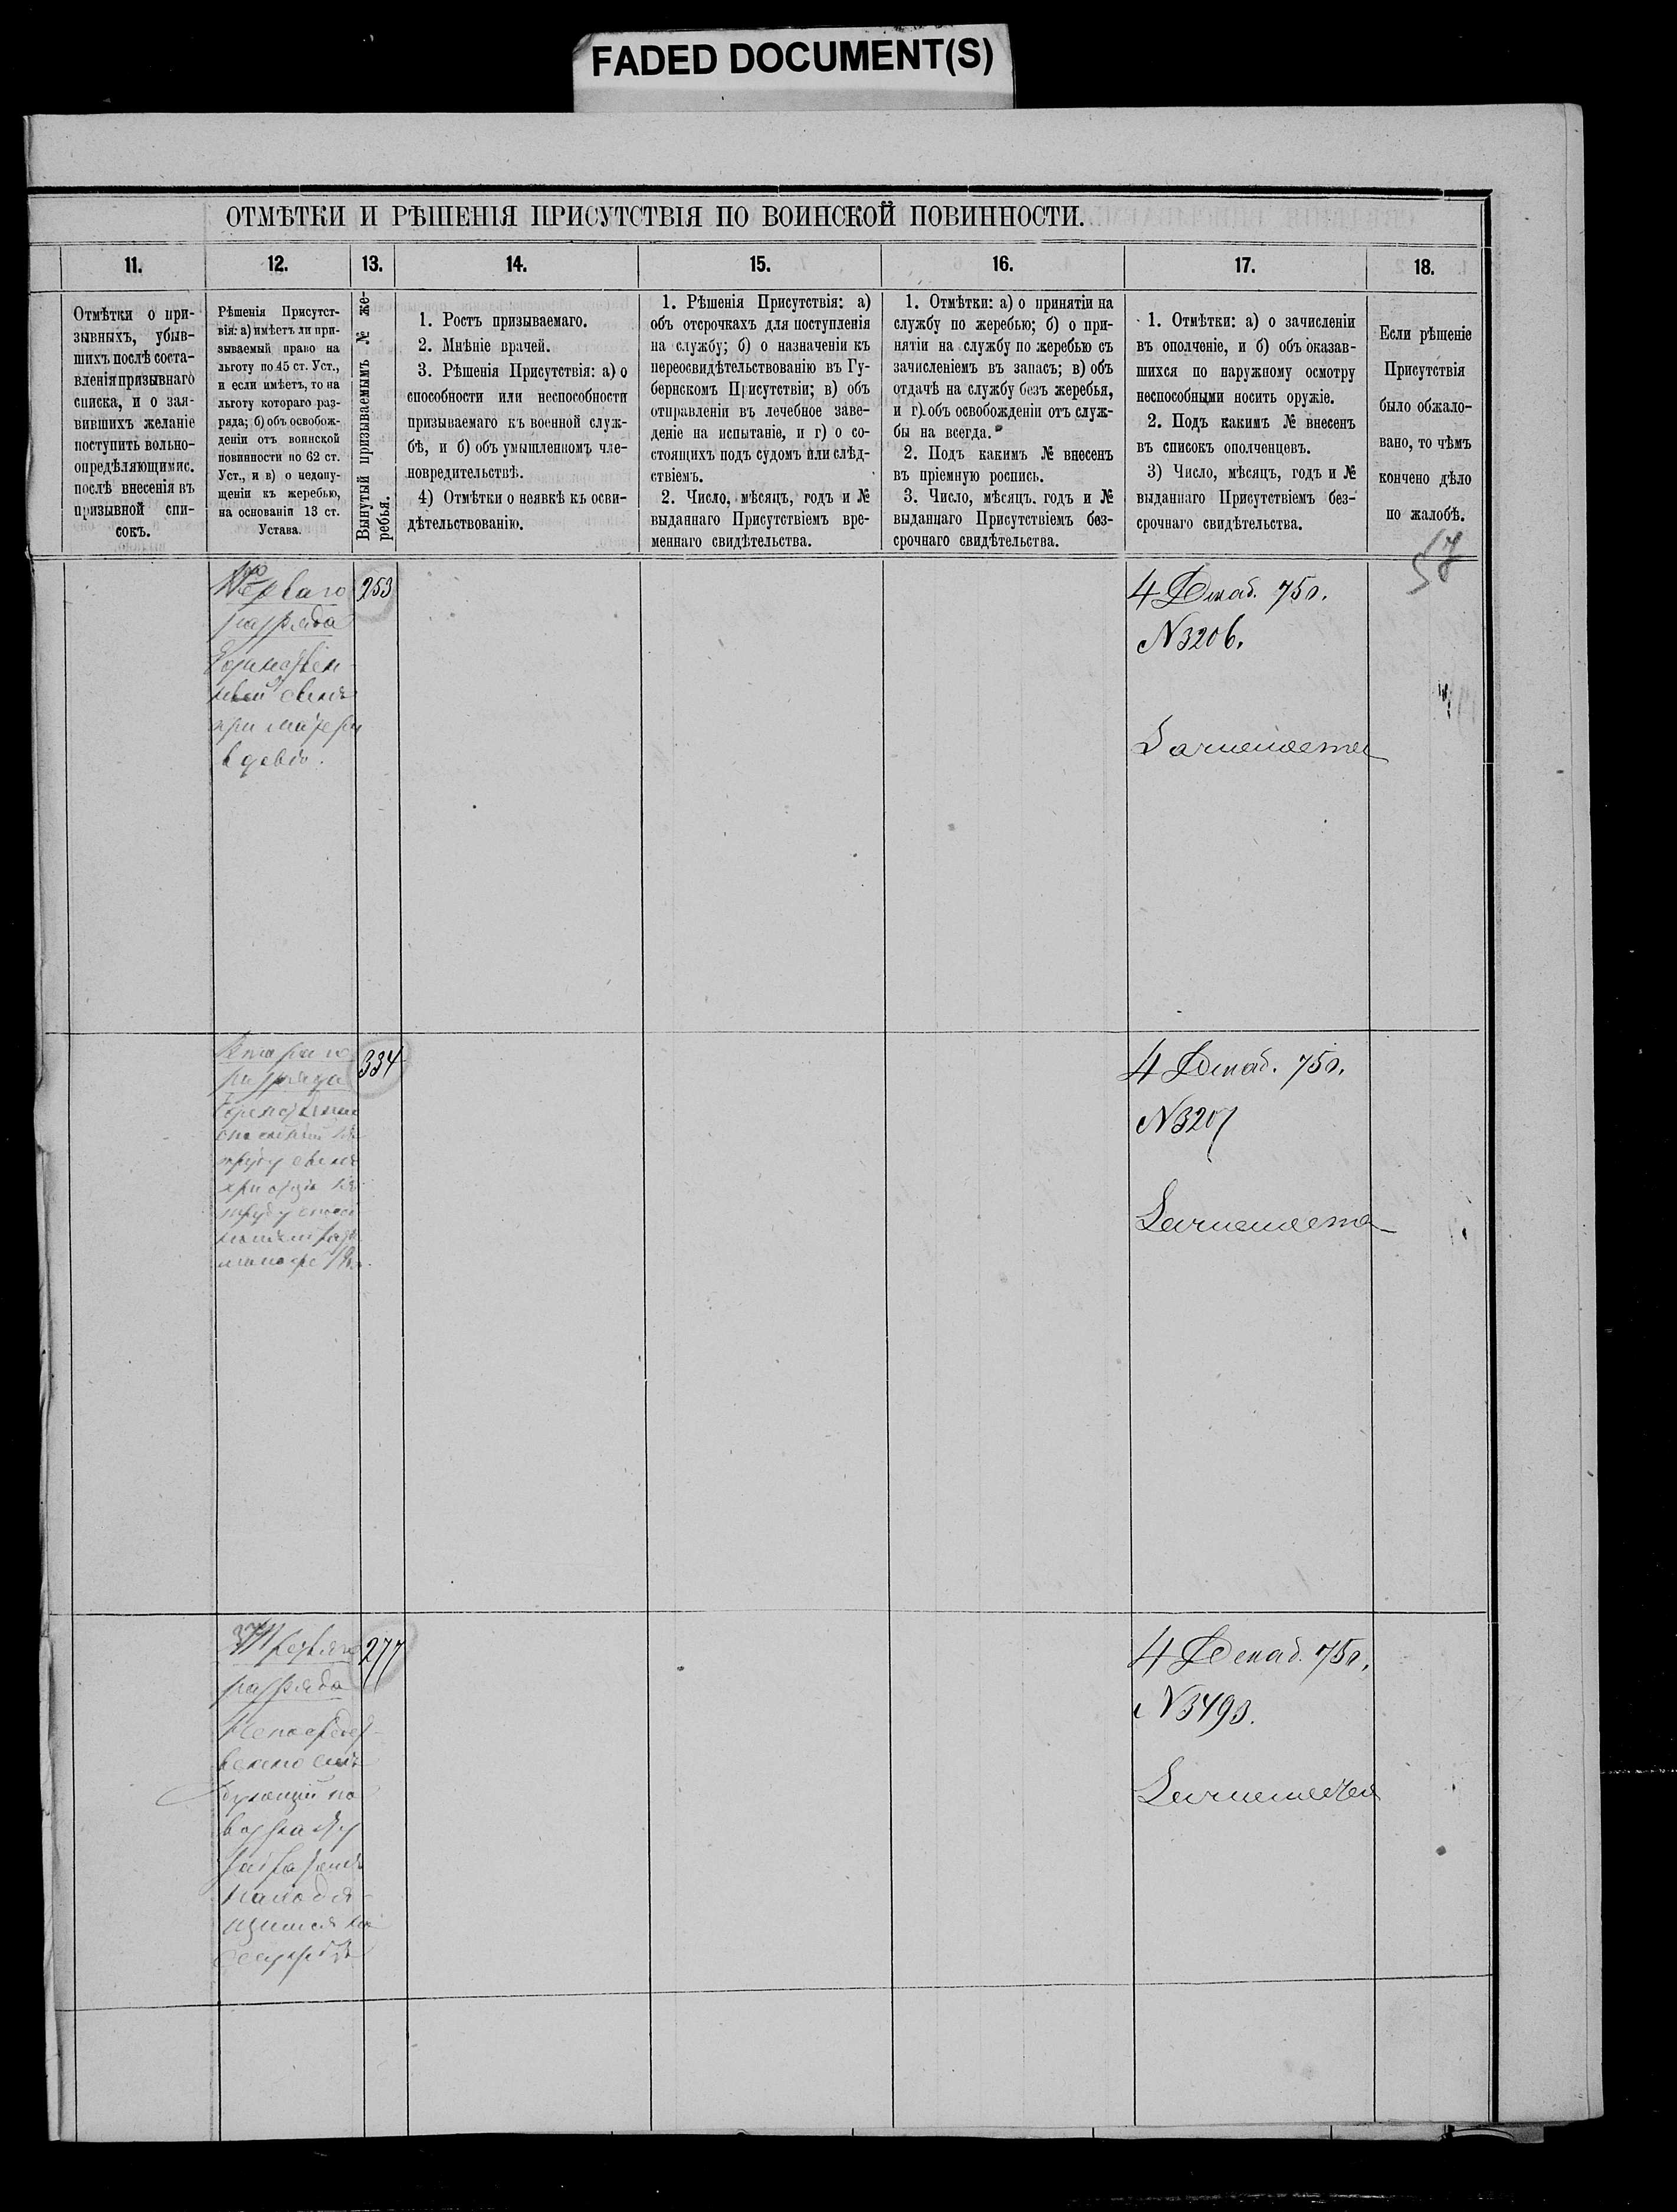 FADED DOCUMENT(S)
ОТМѢТКИ И РѢШЕНІЯ ПРИСУТСТВІЯ ПО ВОИНСКОЙ ПОВИННОСТИ.
11.
12.
13.
14.
15.
16.
17.
18.
Отмѣтки о при-
зывныхъ, убыв-
шихъ послѣ соста-
вленія призывнаго
списка, и о зая-
вившихъ желаніе
поступить вольно-
опредѣляющимис.
послѣ внесенія въ
призывной спи-
сокъ.
Рѣшенія Присутст-
вія: а) имѣетъ ли при-
зываемый право на
льготу по 45 ст. Уст.,
и если имѣетъ, то на
льготу котораго раз-
ряда; б) объ освобож-
деніи отъ воинской
повинности по 62 ст.
Уст., и в) о недопу-
щеніи къ жеребью,
на основаніи 13 ст.
Устава.
Вынутый призываемымъ № же-
ребья.
1. Ростъ призываемаго.
2. Мнѣніе врачей.
3. Рѣшенія Присутствія: а) о
способности или неспособности
призываемаго къ военной служ-
бѣ, и б) объ умышленномъ чле-
новредительствѣ.
4) Отмѣтки о неявкѣ къ осви-
дѣтельствованію.
1. Рѣшенія Присутствія: а)
объ отсрочкахъ для поступленія
на службу; б) о назначеніи къ
переосвидѣтельствованію въ Гу-
бернскомъ Присутствіи; в) объ
отправленіи въ лечебное заве-
деніе на испытаніе, и г) о со-
стоящихъ подъ судомъ или слѣд-
ствіемъ.
2. Число, мѣсяцъ, годъ и №
выданнаго Присутствіемъ вре-
меннаго свидѣтельства.
1. Отмѣтки: а) о принятіи на
службу по жеребью; б) о при-
нятіи на службу по жеребью съ
зачисленіемъ въ запасъ; в) объ
отдачѣ на службу безъ жеребья,
и г) объ освобожденіи отъ служ-
бы на всегда.
2. Подъ какимъ № внесенъ
въ пріемную роспись.
3. Число, мѣсяцъ. годъ и №
выданнаго Присутствіемъ без-
срочнаго свидѣтельства.
1. Отмѣтки: а) о зачисленіи
въ ополченіе, и б) объ оказав-
шихся по наружному осмотру
неспособными носить оружіе.
2. Подъ какимъ № внесенъ
въ списокъ ополченцевъ.
3) Число, мѣсяцъ, годъ и №
выданнаго Присутствіемъ без-
срочнаго свидѣтельства.
Если рѣшеніе
Присутствія
было обжало-
вано, то чѣмъ
кончено дѣло
по жалобѣ.
57
Перваго
разряда
Единствен-
ный сынъ
при матери
вдовѣ.
253
4 Декаб. 75г.
N3206.
разряда
334
4 Декаб. 75г.
N3207
разряда
Непосредст-
венно слѣ-
дующій по
возрасту
за братомъ
находя-
щимся на
службѣ
277
4 Декаб. 75г.
N3493.